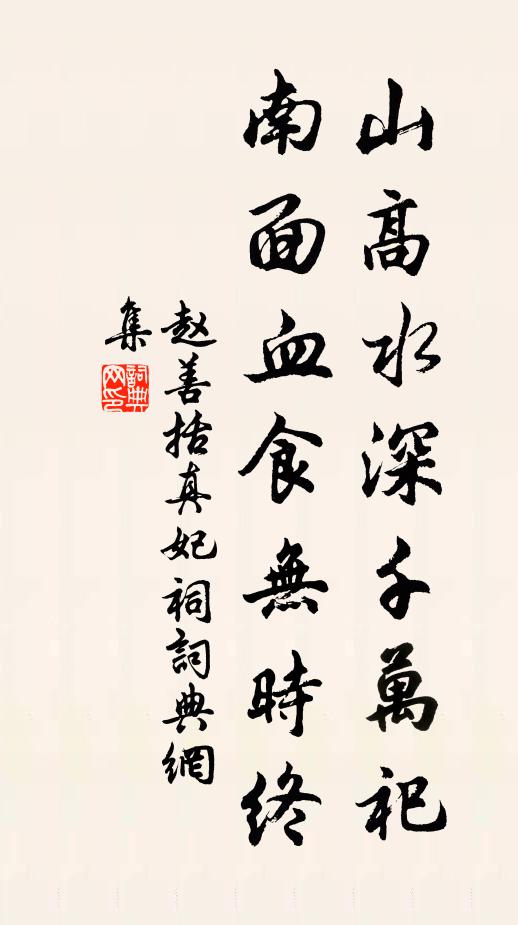 山高水深千萬祀
南面血食無時終
赵善括真妃祠詞典網
集
詞典
网印